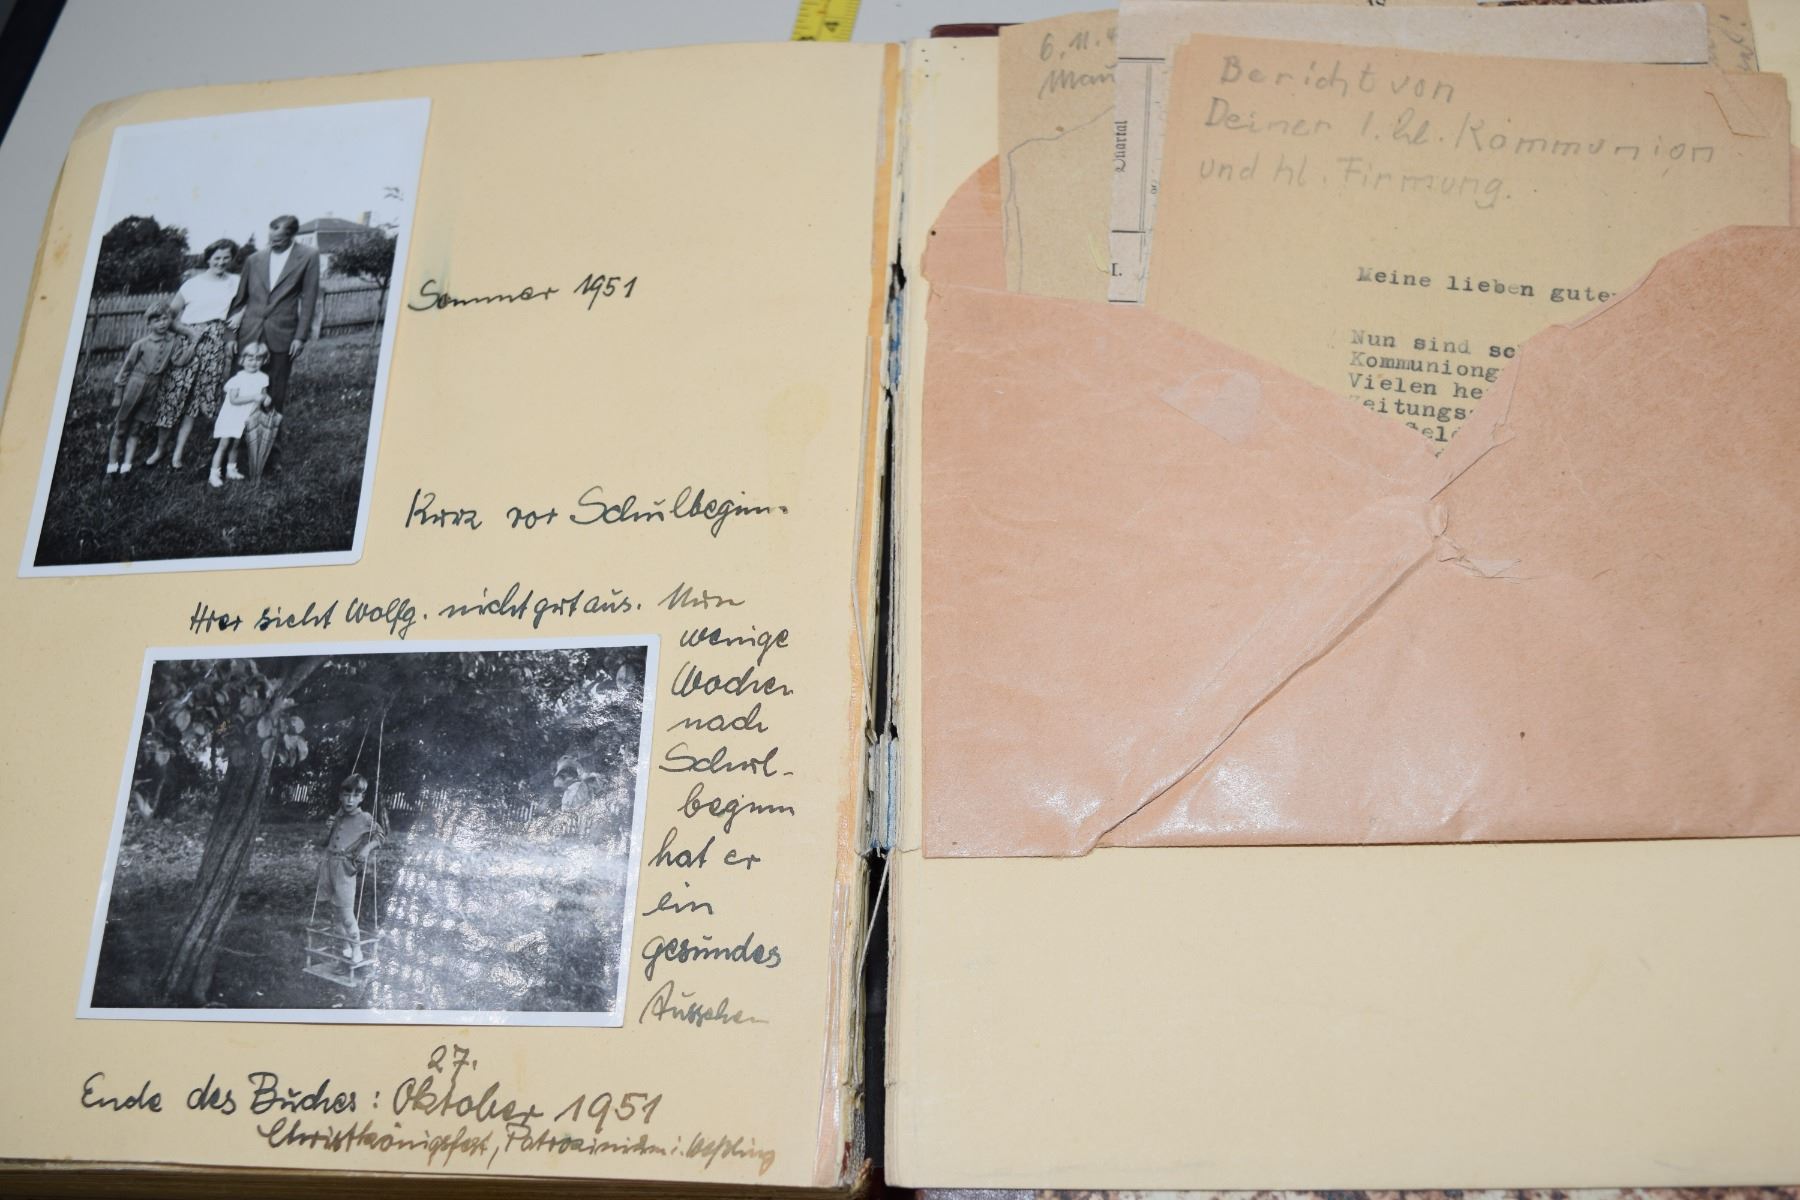 Sommer 1951
Kurz vor Schulbeginn.
Hier sieht Wolfg. nicht gut aus. Nur
wenige
Wochen
nach
Schul-
beginn
hat er
ein
gesundes
Aussehen
27.
Ende des Buches: Oktober 1951
Christkönigsfest, Patrozinium i. Weßling
6. 11.
Quartal
I.
Bericht von
Deiner 1. hl. Kommunion
und hl. Firmung.
Meine lieben guten
Nun sind sc
Kommuniong
Vielen he
Zeitungs
Geld